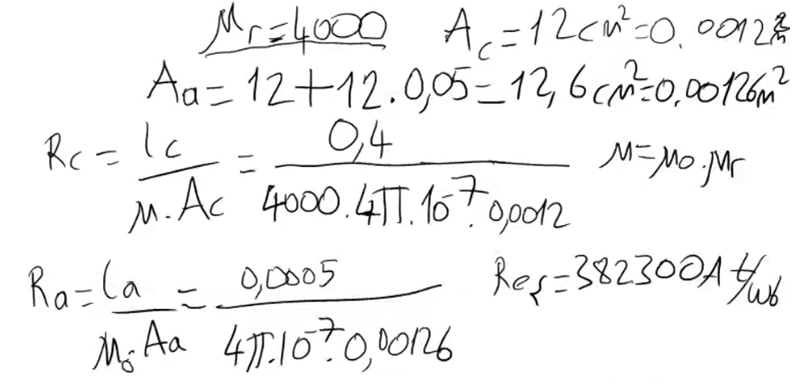 μr=4000 Ac=12cm²=0.0012m²
Aa=12+12.0,05=12,6cm²=0.00126m²
Rc=lc/μ.Ac=0,4/4000.4π.10⁻⁷.0,0012 μ=μo.μr
Ra=la/μo.Aa=0,0005/4π.10⁻⁷.0,00126 Reş=382300At/wb